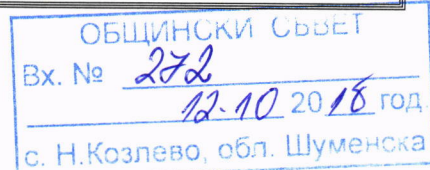 ОБЩИНСКИ СЪВЕТ
Вх. № 272
12.10 2018 год.
с. Н.Козлево, обл. Шуменска